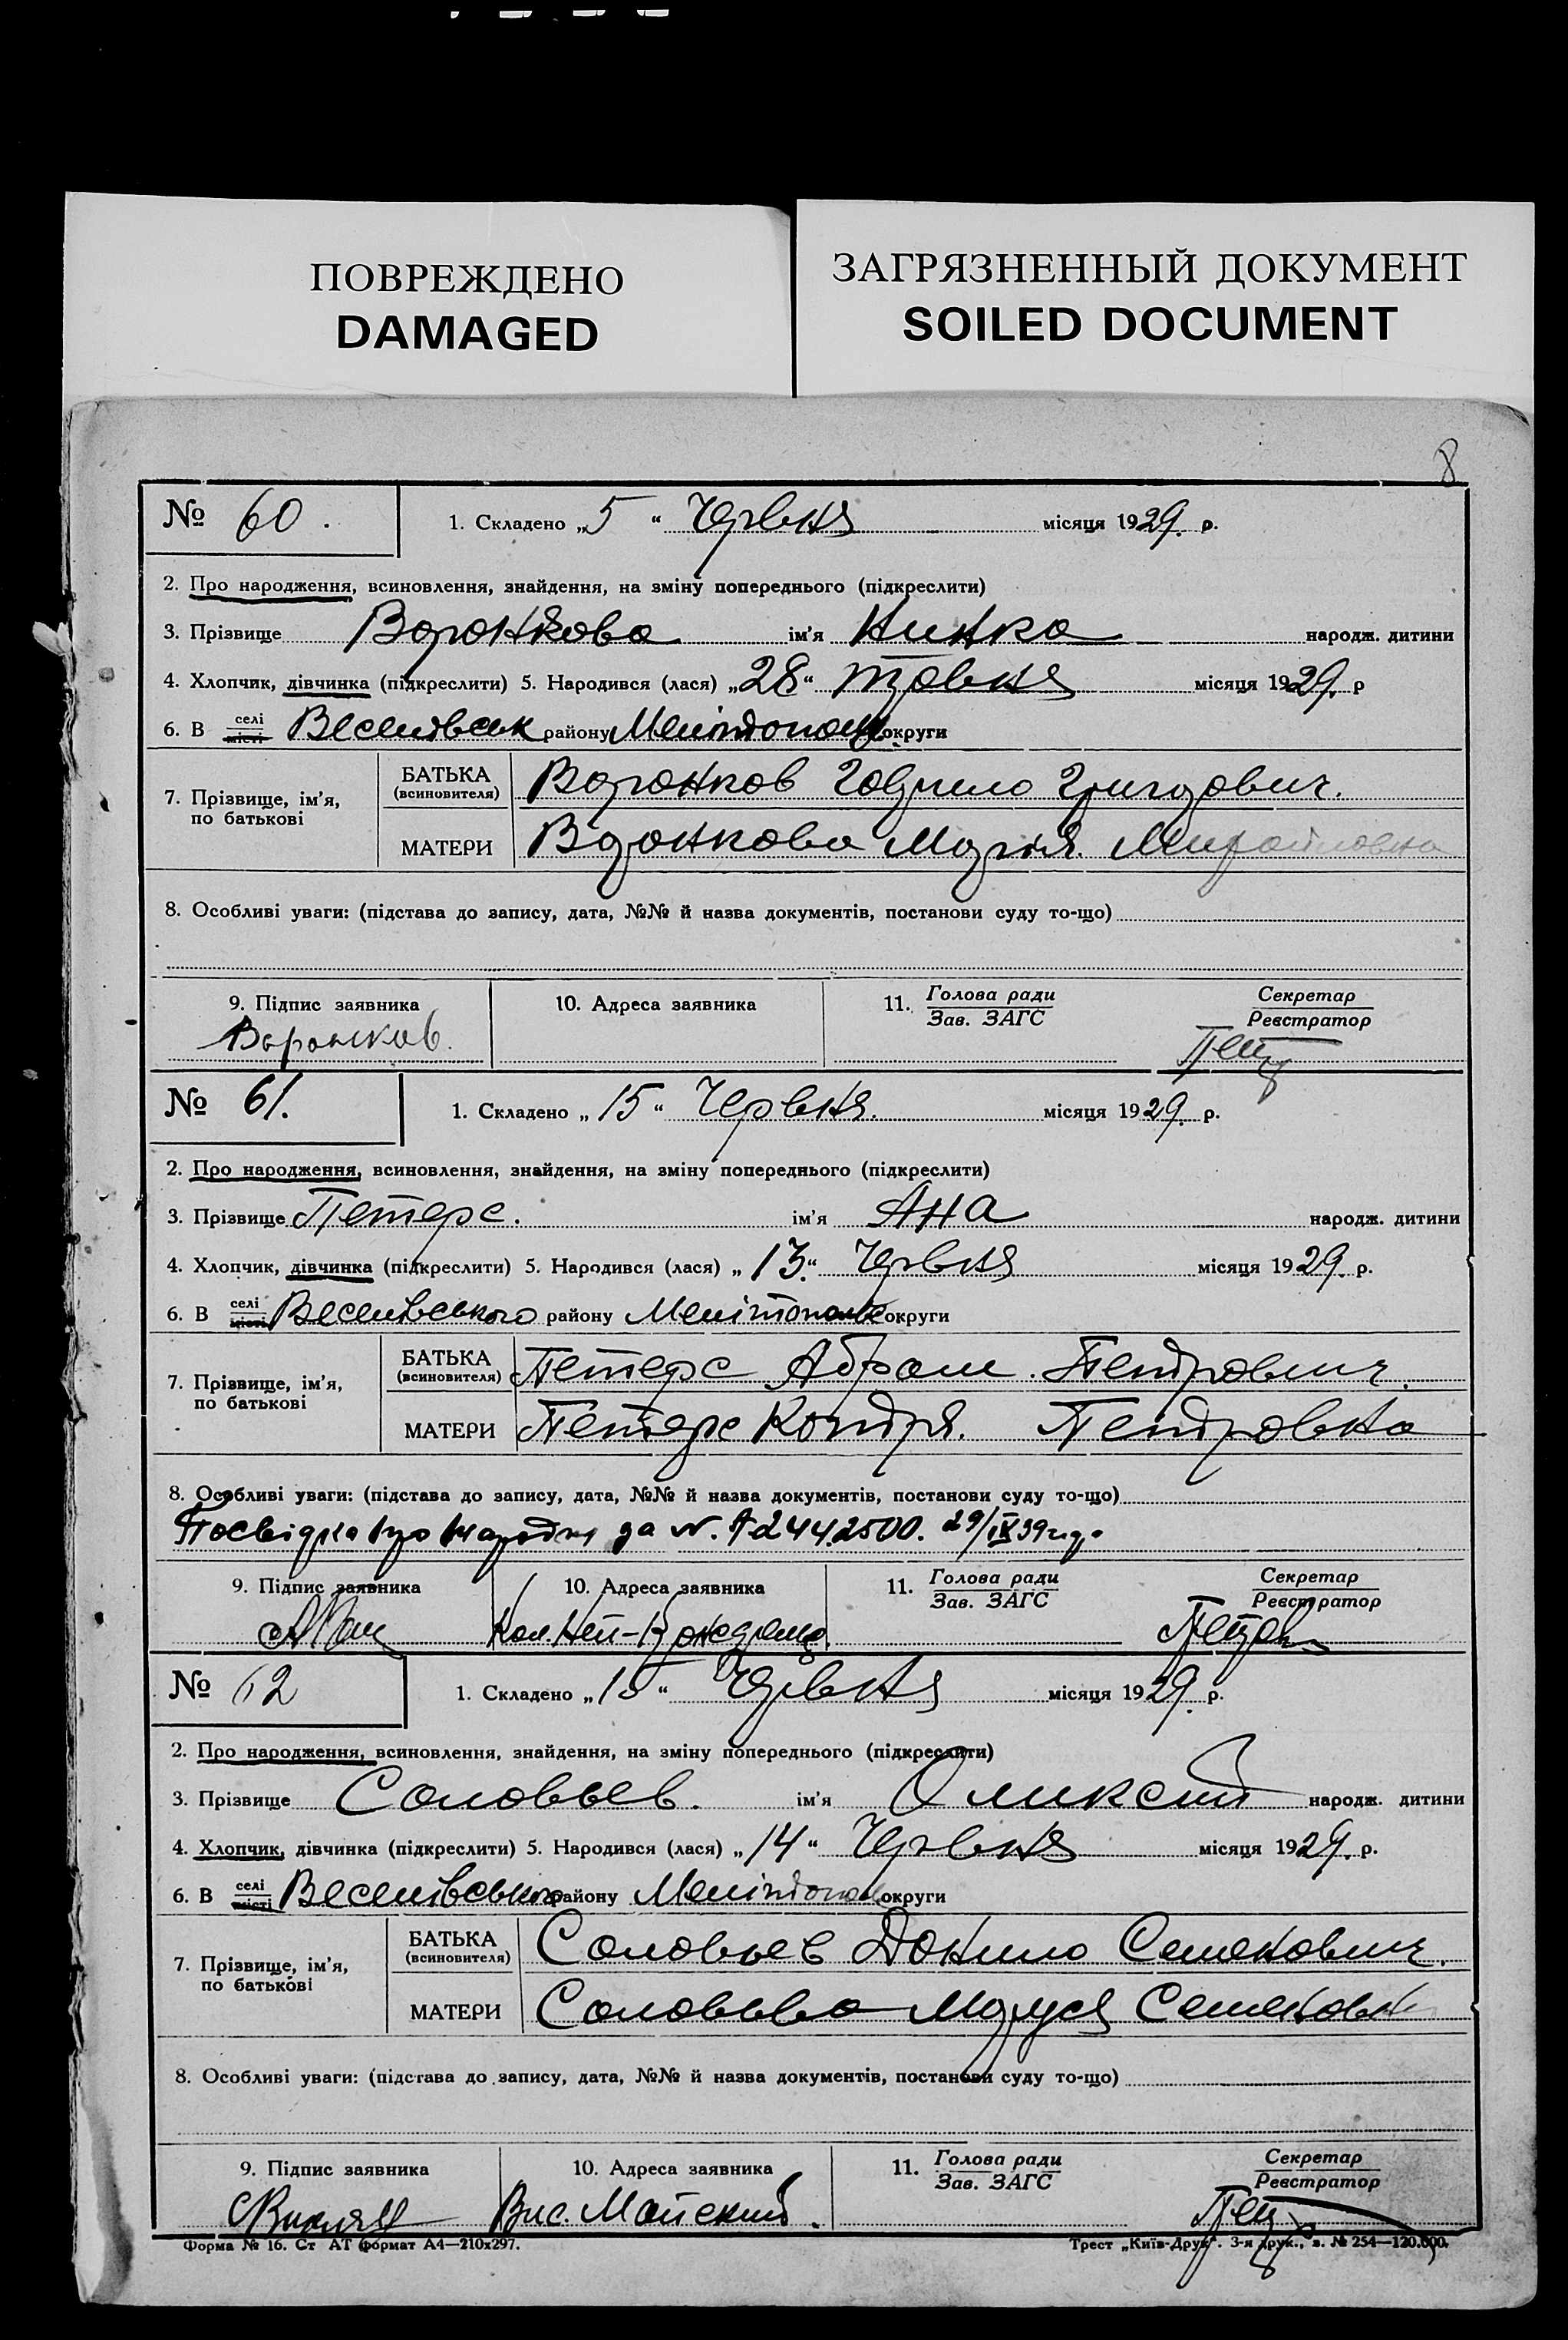 ПОВРЕЖДЕНО
DAMAGED
ЗАГРЯЗНЕННЫЙ ДОКУМЕНТ
SOILED DOCUMENT
8
№ 60. 1. Складено „5“ Червня місяця 1929. р.
2. Про народження, всиновлення, знайдення, на зміну попереднього (підкреслити)
3. Прізвище Воронкова ім'я Нинка народж. дитини
4. Хлопчик, дівчинка (підкреслити) 5. Народився (лася) „28“ травня місяця 1929. р
6. В селі місті Веселівськ району Мелітополь округи
7. Прізвище, ім'я, по батькові
БАТЬКА (всиновителя) Воронков Гаврило Григорович.
МАТЕРИ Воронкова Марія. Михайловна
8. Особливі уваги: (підстава до запису, дата, №№ й назва документів, постанови суду то-що)
9. Підпис заявника 10. Адреса заявника 11. Голова ради Зав. ЗАГС Секретар Реєстратор
Воронков.
№ 61. 1. Складено „15“ Червня. місяця 1929. р.
2. Про народження, всиновлення, знайдення, на зміну попереднього (підкреслити)
3. Прізвище Петерс. ім'я Ана народж. дитини
4. Хлопчик, дівчинка (підкреслити) 5. Народився (лася) „13.“ Червня місяця 1929. р.
6. В селі місті Веселівського району Мелітопольс округи
7. Прізвище, ім'я, по батькові
БАТЬКА (всиновителя) Петерс Абрам. Петрович.
МАТЕРИ Петерс Котря. Петровна
8. Особливі уваги: (підстава до запису, дата, №№ й назва документів, постанови суду то-що)
29/IX 39
9. Підпис заявника 10. Адреса заявника 11. Голова ради Зав. ЗАГС Секретар Реєстратор
Кол.
№ 62 1. Складено „15“ Червня місяця 1929. р.
2. Про народження, всиновлення, знайдення, на зміну попереднього (підкреслити)
3. Прізвище Соловьев. ім'я Оликсий народж. дитини
4. Хлопчик, дівчинка (підкреслити) 5. Народився (лася) „14“ Червня місяця 1929. р.
6. В селі місті Веселівського району Мелітополь округи
7. Прізвище, ім'я, по батькові
БАТЬКА (всиновителя) Соловьев Данило Семенович.
МАТЕРИ Соловьва Маруся Семеновн
8. Особливі уваги: (підстава до запису, дата, №№ й назва документів, постанови суду то-що)
9. Підпис заявника 10. Адреса заявника 11. Голова ради Зав. ЗАГС Секретар Реєстратор
Вис. Майский.
Форма № 16. Ст АТ формат А4—210х297. Трест „Київ-Друк“. 3-я друк., з. № 254—120.000.